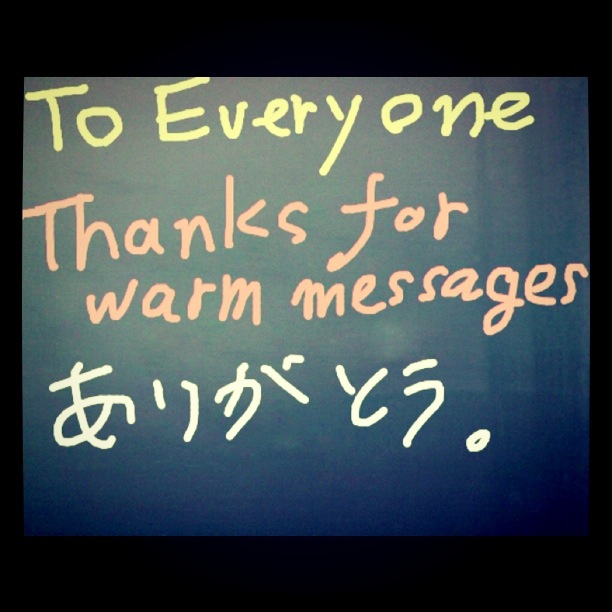 To Everyone
Thanks for
warm messages
ありがとう。